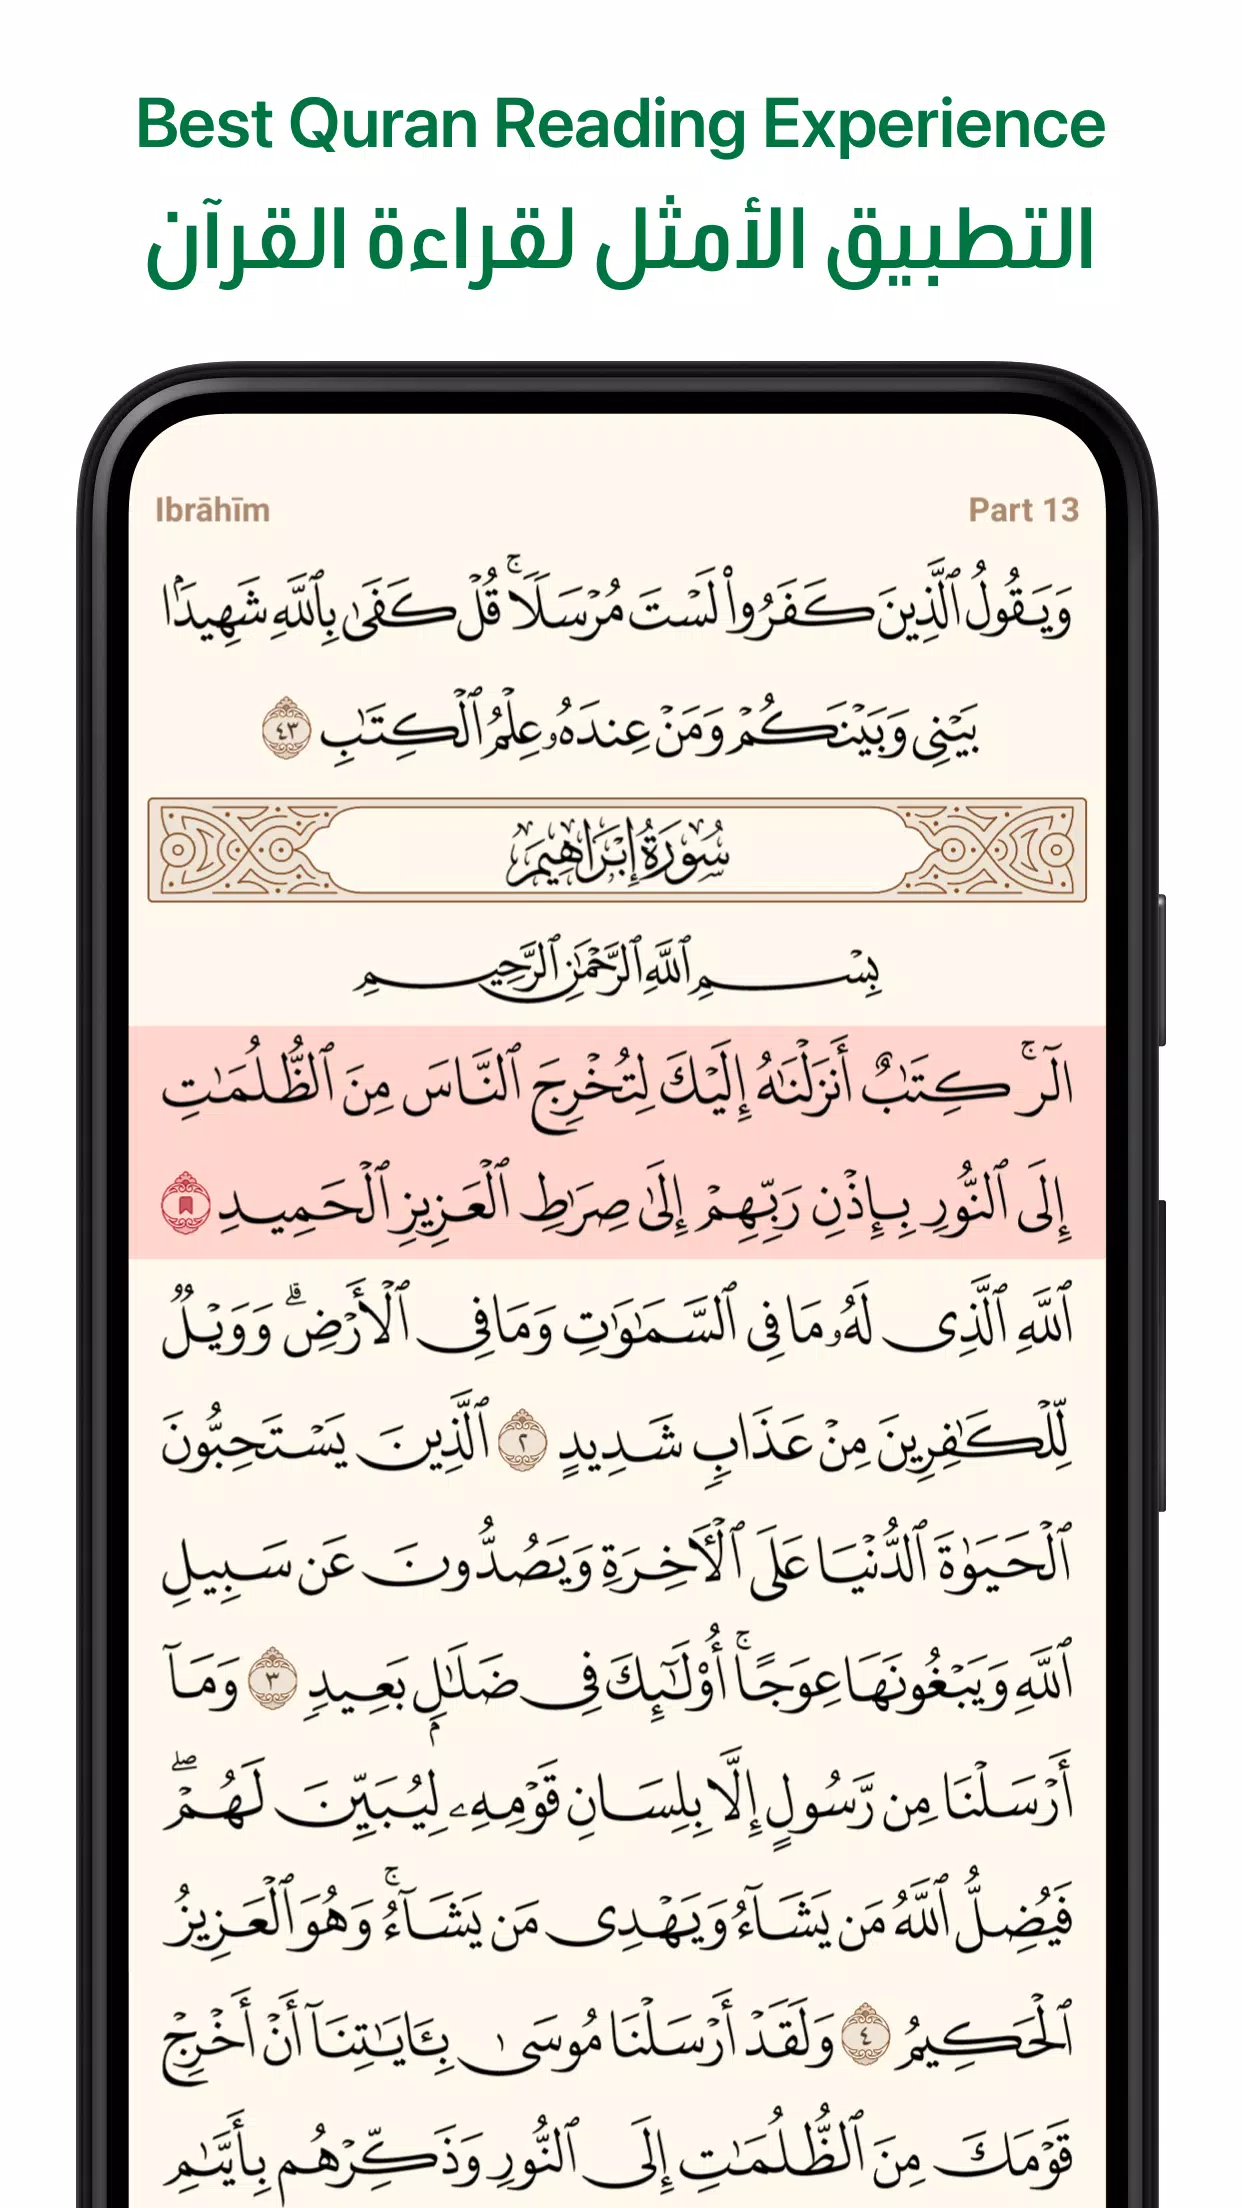 Best Quran Reading Experience
التطبيق الأمثل لقراءة القرآن
Ibrāhīm Part 13
وَيَقُولُ ٱلَّذِينَ كَفَرُواْ لَسۡتَ مُرۡسَلٗاۚ قُلۡ كَفَىٰ بِٱللَّهِ شَهِيدَۢا
بَيۡنِي وَبَيۡنَكُمۡ وَمَنۡ عِندَهُۥ عِلۡمُ ٱلۡكِتَٰبِ ٤٣
سُورَةُ إِبۡرَاهِيمَ
بِسۡمِ ٱللَّهِ ٱلرَّحۡمَٰنِ ٱلرَّحِيمِ
الٓرۚ كِتَٰبٌ أَنزَلۡنَٰهُ إِلَيۡكَ لِتُخۡرِجَ ٱلنَّاسَ مِنَ ٱلظُّلُمَٰتِ
إِلَى ٱلنُّورِ بِإِذۡنِ رَبِّهِمۡ إِلَىٰ صِرَٰطِ ٱلۡعَزِيزِ ٱلۡحَمِيدِ
ٱللَّهِ ٱلَّذِي لَهُۥ مَا فِي ٱلسَّمَٰوَٰتِ وَمَا فِي ٱلۡأَرۡضِۗ وَوَيۡلٞ
لِّلۡكَٰفِرِينَ مِنۡ عَذَابٖ شَدِيدٍ ٢ ٱلَّذِينَ يَسۡتَحِبُّونَ
ٱلۡحَيَوٰةَ ٱلدُّنۡيَا عَلَى ٱلۡأٓخِرَةِ وَيَصُدُّونَ عَن سَبِيلِ
ٱللَّهِ وَيَبۡغُونَهَا عِوَجًاۚ أُوْلَٰٓئِكَ فِي ضَلَٰلِۭ بَعِيدٖ ٣ وَمَآ
أَرۡسَلۡنَا مِن رَّسُولٍ إِلَّا بِلِسَانِ قَوۡمِهِۦ لِيُبَيِّنَ لَهُمۡۖ
فَيُضِلُّ ٱللَّهُ مَن يَشَآءُ وَيَهۡدِي مَن يَشَآءُۚ وَهُوَ ٱلۡعَزِيزُ
ٱلۡحَكِيمُ ٤ وَلَقَدۡ أَرۡسَلۡنَا مُوسَىٰ بِـَٔايَٰتِنَآ أَنۡ أَخۡرِجۡ
قَوۡمَكَ مِنَ ٱلظُّلُمَٰتِ إِلَى ٱلنُّورِ وَذَكِّرۡهُم بِأَيَّىٰمِ